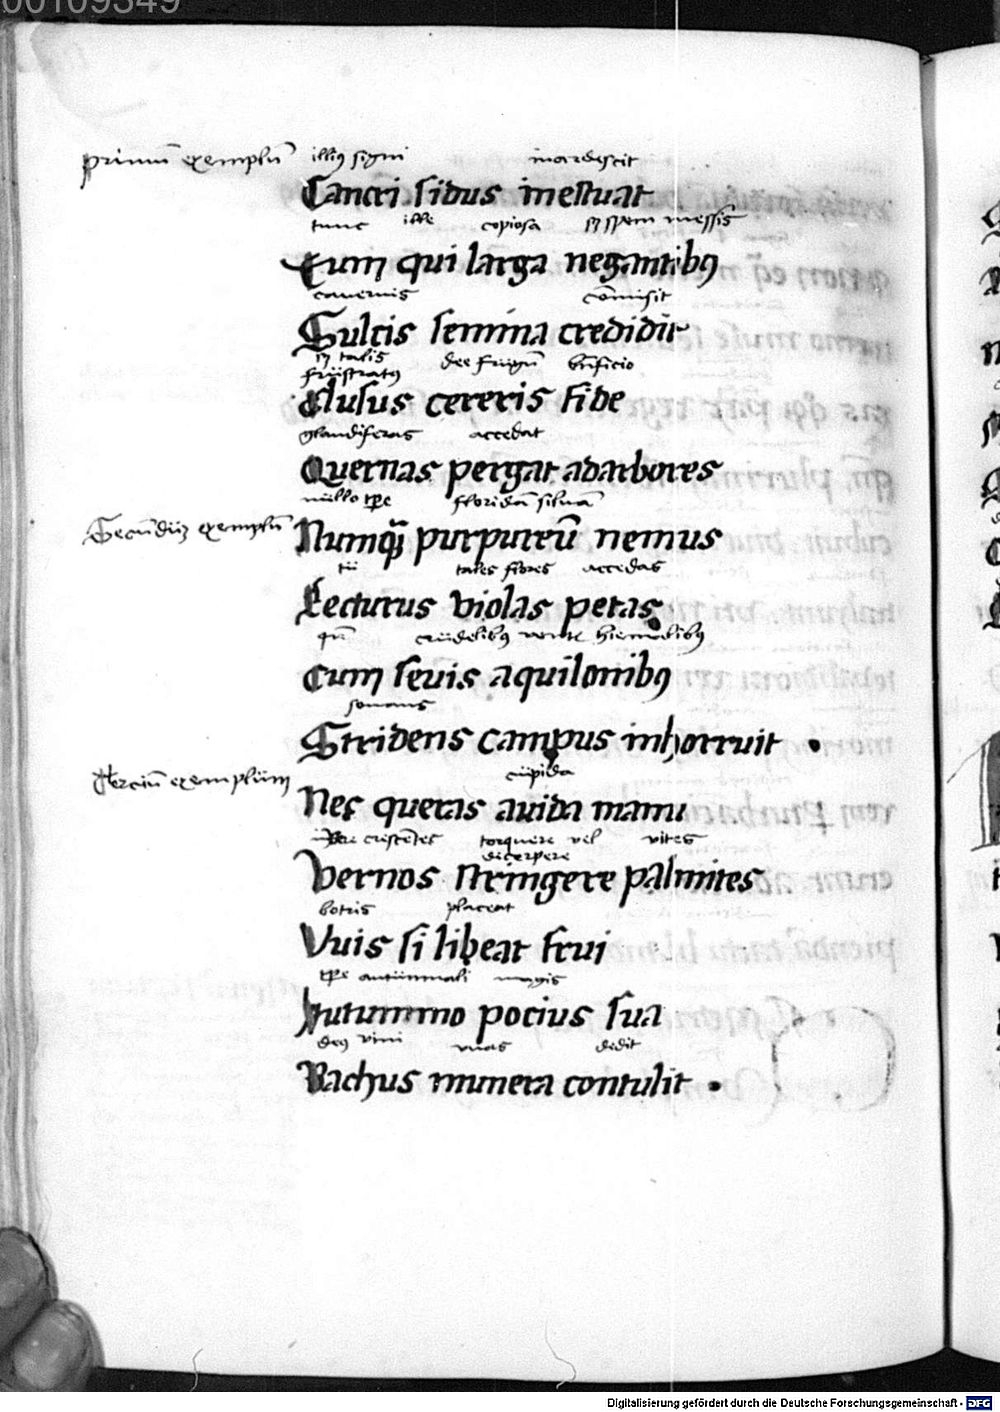 00109349
primū exemplū illiꝰ signi inardescit
Cancri sidus inestuat
tunc ille copiosa spem messis
Tum qui larga negantibꝰ
cauernis cōmisit
Sulcis semina credidit
talis dee frugū bn̄ficio
frustratꝰ
Elusus cereris fide
glandiferas accedat
Quernas pergat adarbores
nullo tp̄e floridā siluā
Secūdū exemplū Numqͣꝫ purpureū nemus
tu tales flores accedas
Lecturus violas petas
qn̄ crudelibꝰ hiemalibꝰ
Cum seuis aquilonibꝰ
sonans
Stridens campus inhorruit .
cupida
Terciū exemplum Nec queras auida manu
crescētes torquere vel vites
decerpere
Vernos stringere palmites
botris placeat
Vuis si libeat frui
tp̄e autumnali magis
Autumno pocius sua
deꝰ vini vuas dedit
Bachus munera contulit .
Digitalisierung gefördert durch die Deutsche Forschungsgemeinschaft - DFG